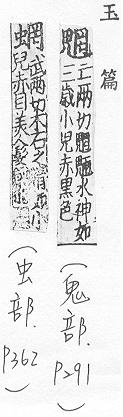 玉篇
魍亡兩切魍魎水神如
三歲小兒赤黑色
(鬼部.P291)
武兩切木石之
兒赤目美
(虫部.P362)